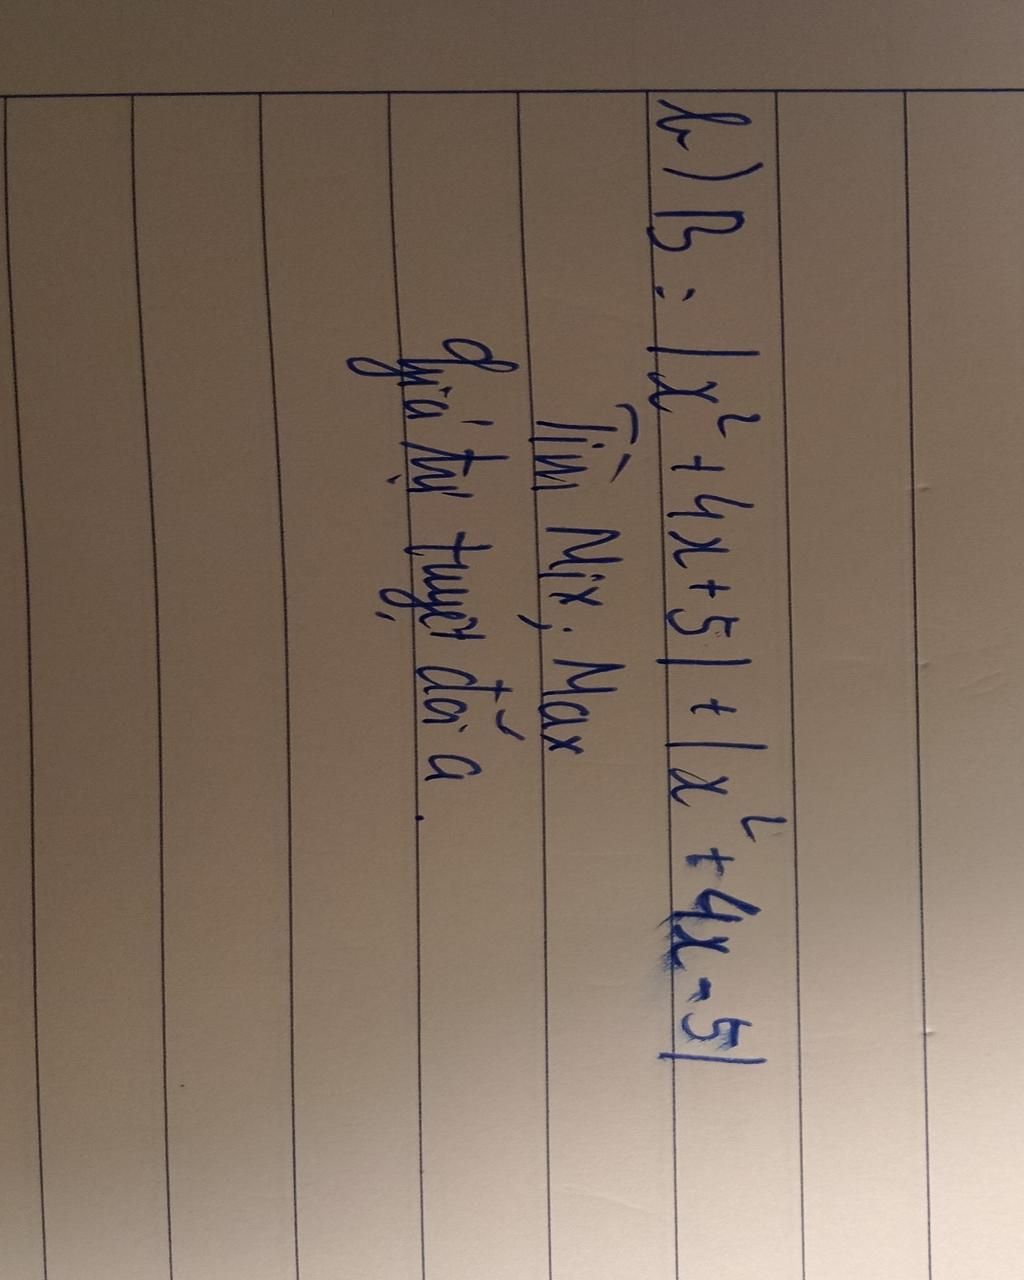 b) B : |x² + 4x + 5| + |x² + 4x - 5|
Tìm Mix, Max
giá trị tuyệt đối ạ.